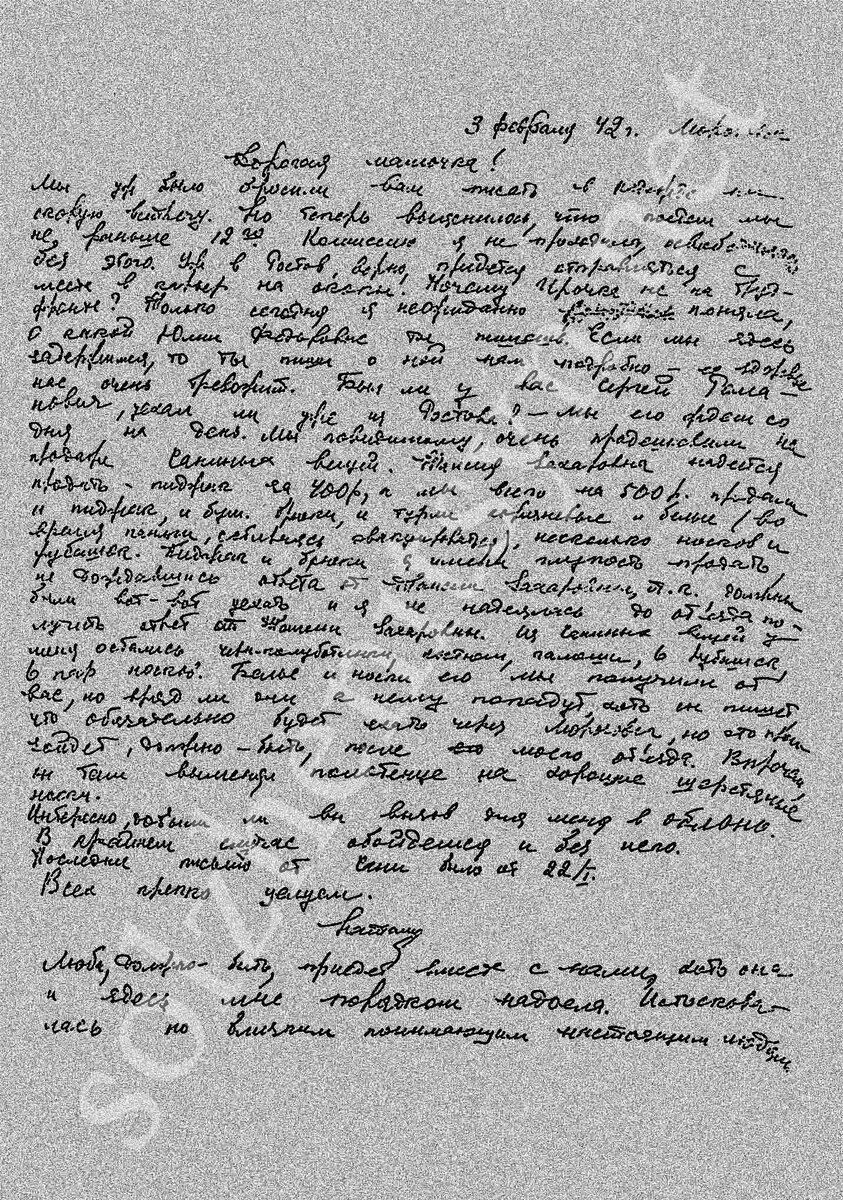 3 февраля 42 г.
Дорогая мамочка!
Мы уж было бросили вам писать в
скорую встречу. Но теперь выяснилось, что поедем мы
не раньше 12го. Комиссию я не проходила,
без этого. Уж в Ростов, верно, придется отправляться с
места в карьер на окопы. Почему Ирочка не на труд-
фронте? Только сегодня я неожиданно поняла,
о какой Юлии Федоровне ты пишешь. Если мы здесь
задержимся, то ты пиши о ней нам подробно – ее здоровье
нас очень тревожит. Был ли у вас Сергей Рома-
нович, уехал ли уже из Ростова? – Мы его ждем со
дня на день. Мы, повидимому, очень продешевили на
продаже Саниных вещей. Таисия Захаровна надеется
продать – пиджак за 400р, а мы всего на 500р. продали
и пиджак, и бум. брюки, и туфли коричневые и белые (во
время паники, собираясь эвакуироваться), несколько носков и
рубашек. Пиджак и брюки я имела глупость продать
не дождавшись ответа от Таисии Захаровны, т.к. должны
были вот-вот уехать и я не надеялась до отъезда по-
лучить ответ от Таисии Захаровны. Из Саниных вещей у
меня остались костюм, галоши, 6 рубашек,
6 пар носков. Белье и носки его мы получили от
вас, но вряд ли они к нему попадут, хоть он пишет
что обязательно будет ехать через Морозовск, но это прои-
зойдет, должно-быть, после моего отъезда. Впрочем,
он там выменял полотенце на хорошие шерстяные
носки.
Интересно, добыли ли вы вызов для меня в облоно.
В крайнем случае обойдемся и без него.
Последнее письмо от Сани было от 22/I.
Всех крепко целуем.
Наташа
Люба, должно-быть, приедет вместе с нами, хоть она
и здесь мне порядком надоела. Истоскова-
лась по близким понимающим настоящим людям.
solzhenitsyn.net